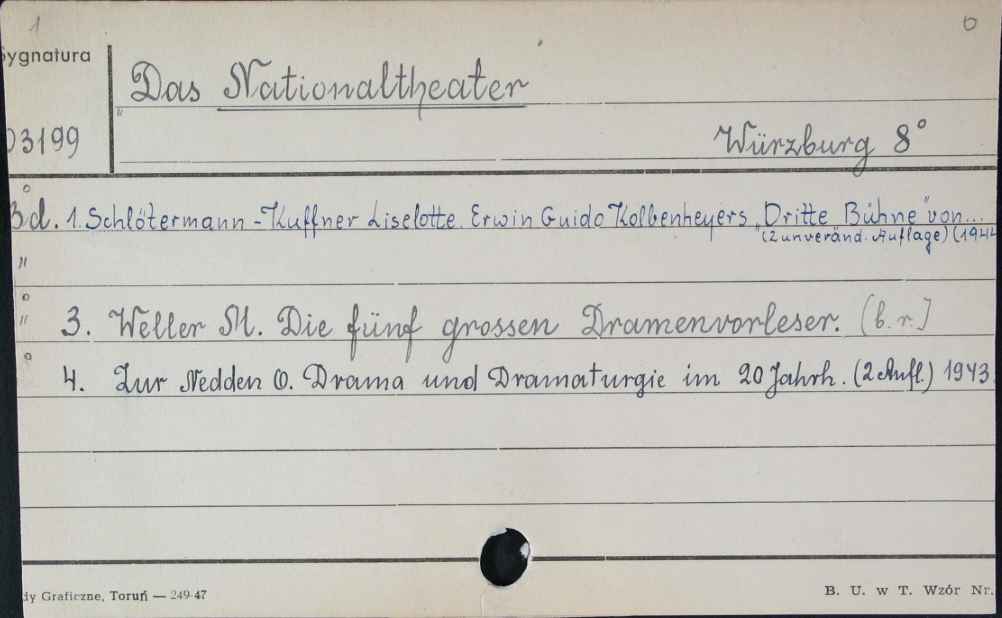 1 0
Sygnatura
Das Nationaltheater
03199
Würzburg 8°
Bd. 1. Schlötermann-Kuffner Liselotte. Erwin Guido Kolbenheyers „Dritte Bühne" von...
(2 unveränd. Auflage) (1944
"
" 3. Weller M. Die fünf grossen Dramenvorleser. (b.r.]
4. Zur Nedden O. Drama und Dramaturgie im 20 Jahrh. (2 Aufl.) 1943
dy Graficzne, Toruń — 249-47
B. U. w T. Wzór Nr.